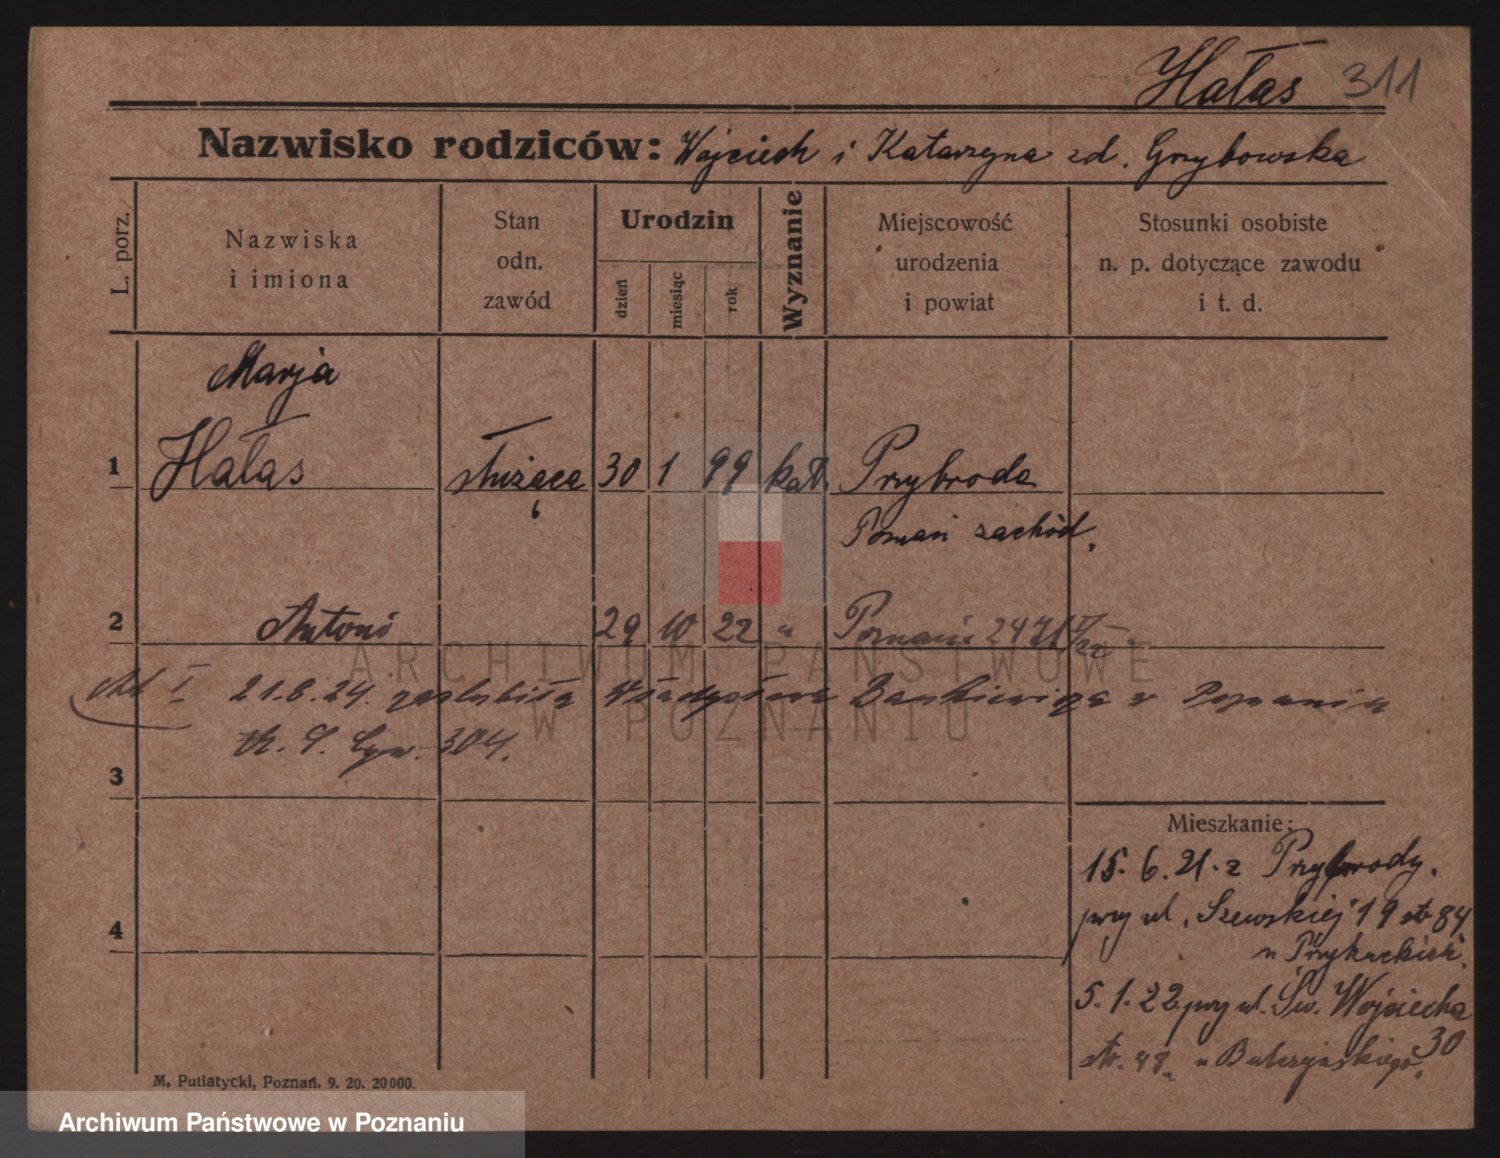 Hałas 311
Nazwisko rodziców: Wojciech i Katarzyna zd. Grzybowska
L. porz.
Nazwiska i imiona
Stan odn. zawód
Urodzin
dzień
miesiąc
rok
Wyznanie
Miejscowość urodzenia i powiat
Stosunki osobiste n. p. dotyczące zawodu i t. d.
Marja
1 Hałas służąca 30 1 99 kat. Przybroda
Poznań zachód.
2 Antoni 29 10 22 " Poznań 2471
ARCHIWUM PAŃSTWOWE
Ad I 21.6.24. zaślubiła Władysława w Poznaniu
W POZNANIU
304.
3
Mieszkanie:
15. 6. 21. z Przybrody.
przy ul. Szewskiej 19 str 84
u
4
5. 1. 22. przy ul. Św. Wojciecha 30
str. 49. u
M. Putiatycki, Poznań. 9. 20. 20000.
Archiwum Państwowe w Poznaniu